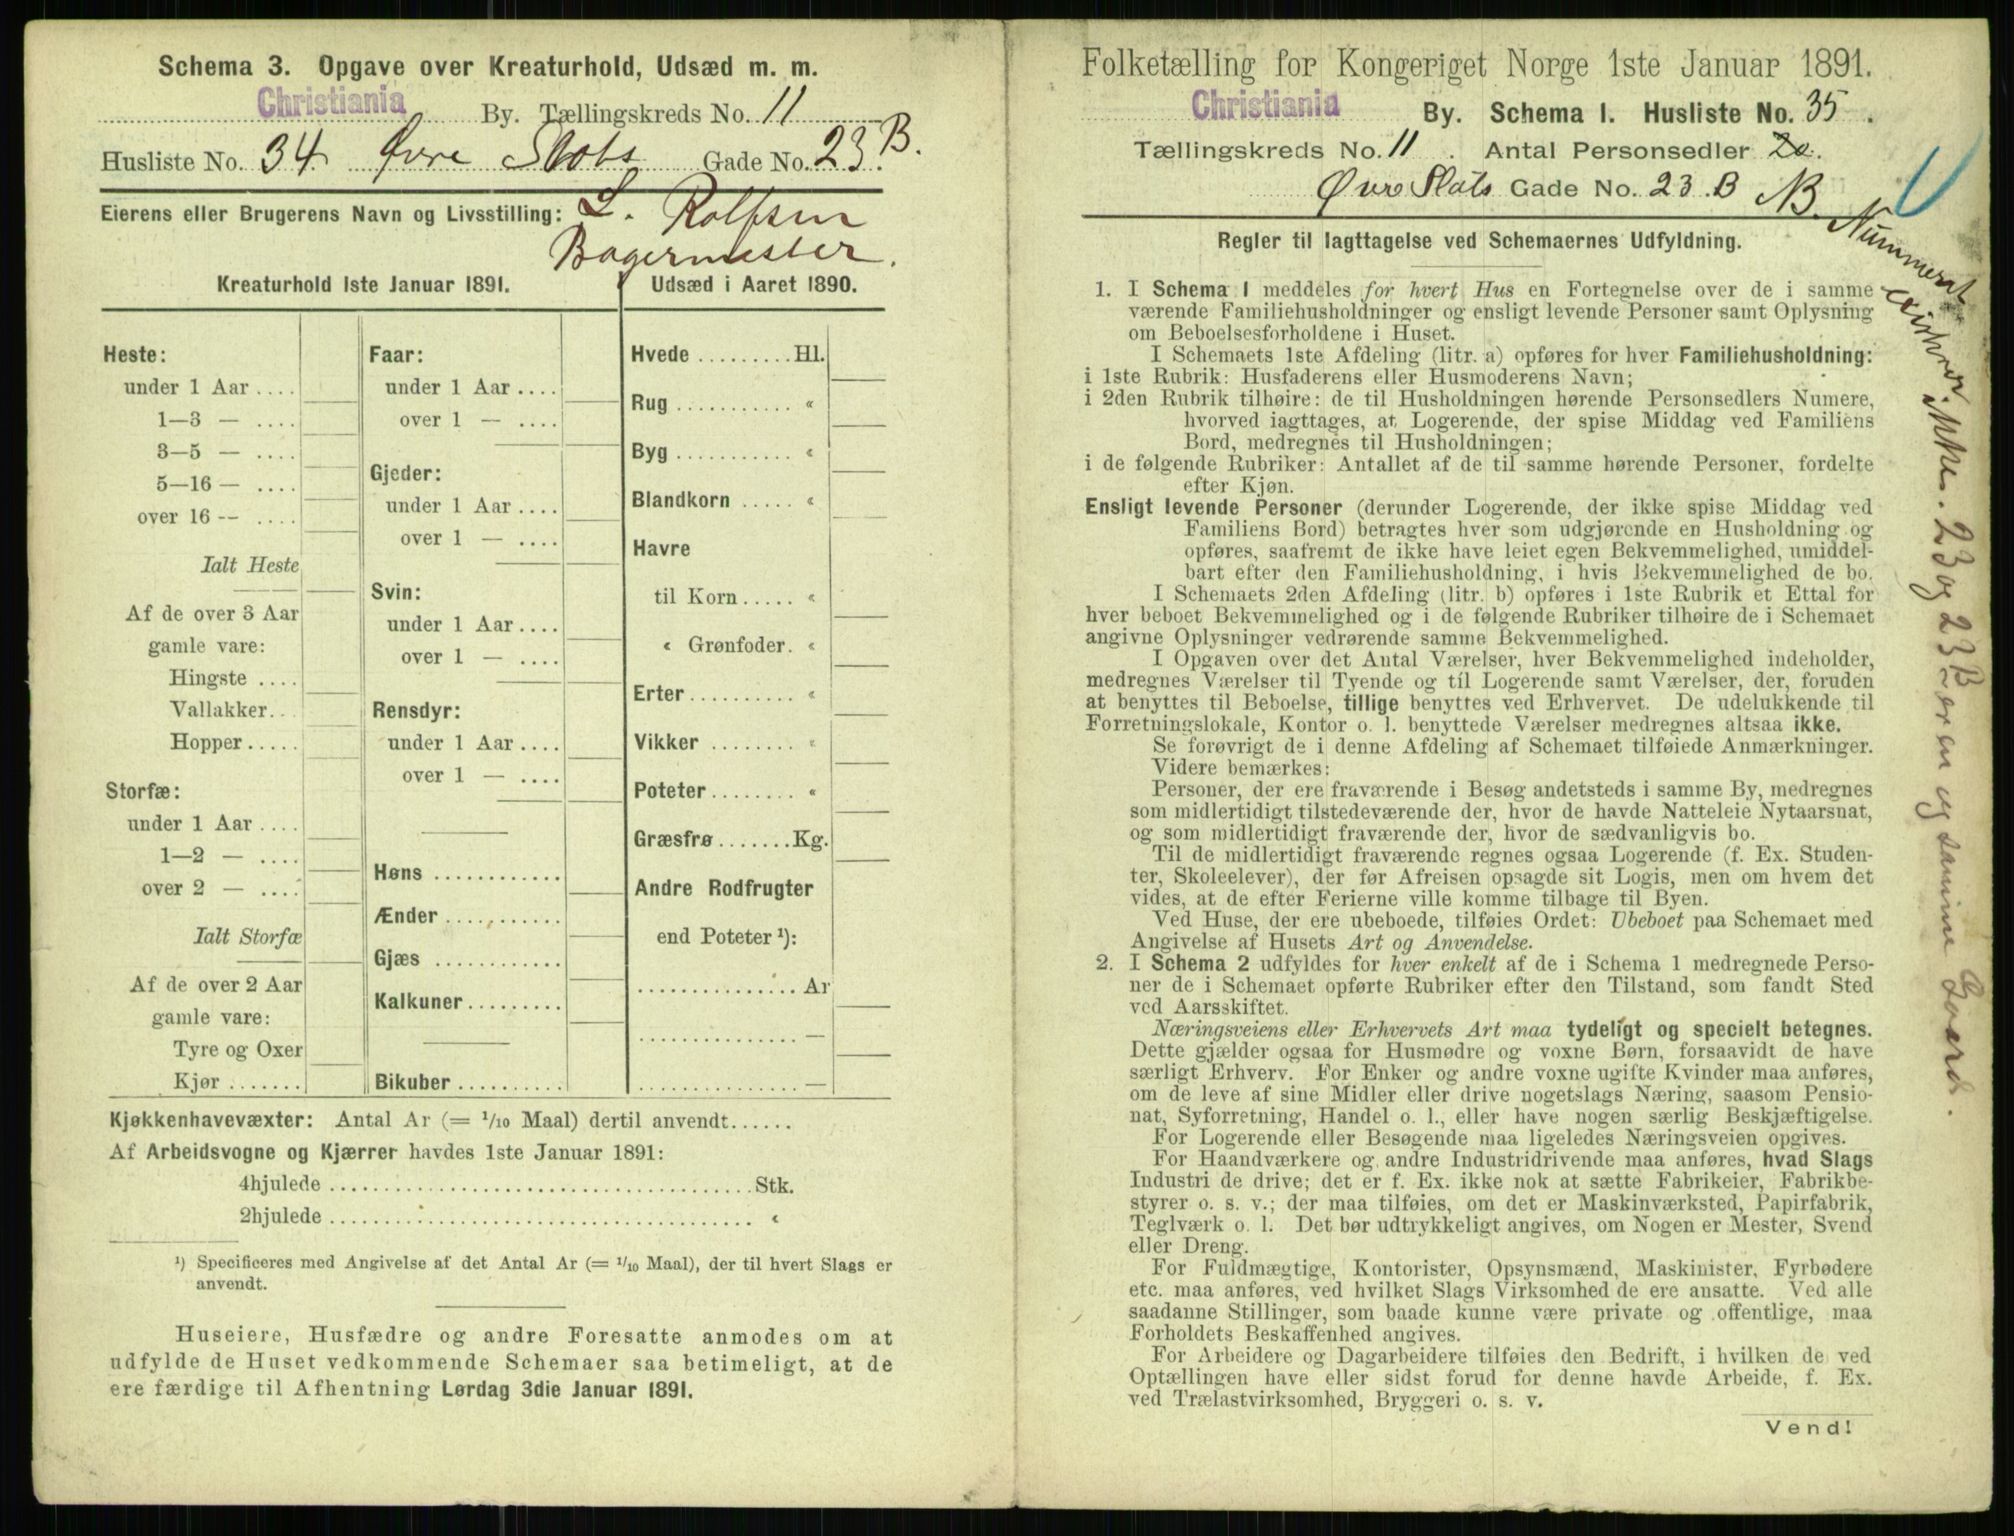 Schema 3. Opgave over Kreaturhold, Udsæd m. m.
Christiania By. Tællingskreds No. 11
Husliste No. 34 Øvre Slots Gade No. 23 B.
Eierens eller Brugerens Navn og Livsstilling: L. Rolfsen
Bagermester.
Kreaturhold 1ste Januar 1891.
Heste:
under 1 Aar ....
1—3 — ....
3—5 — ....
5—16 — ....
over 16 — ....
Ialt Heste
Af de over 3 Aar
gamle vare:
Hingste ....
Vallakker..
Hopper.....
Storfæ:
under 1 Aar ....
1—2 — ....
over 2 — ....
Ialt Storfæ
Af de over 2 Aar
gamle vare:
Tyre og Oxer
Kjør .......
Faar:
under 1 Aar ....
over 1 — ....
Gjeder:
under 1 Aar ....
over 1 — ....
Svin:
under 1 Aar ....
over 1 — ....
Rensdyr:
under 1 Aar ....
over 1 — ....
Høns ............
Ænder ...........
Gjæs ............
Kalkuner.........
Bikuber ..........
Udsæd i Aaret 1890.
Hvede .........Hl.
Rug ........... «
Byg ........... «
Blandkorn ..... «
Havre
til Korn ..... «
« Grønfoder. «
Erter .......... «
Vikker ........ «
Poteter ........ «
Græsfrø .......Kg.
Andre Rodfrugter
end Poteter ¹):
...............Ar
............... —
............... —
Kjøkkenhavevæxter: Antal Ar (= 1/10 Maal) dertil anvendt......
Af Arbeidsvogne og Kjærrer havdes 1ste Januar 1891:
4hjulede ........................................Stk.
2hjulede ........................................ «
¹) Specificeres med Angivelse af det Antal Ar (= 1/10 Maal), der til hvert Slags er
anvendt.
Huseiere, Husfædre og andre Foresatte anmodes om at
udfylde de Huset vedkommende Schemaer saa betimeligt, at de
ere færdige til Afhentning Lørdag 3die Januar 1891.
Folketælling for Kongeriget Norge 1ste Januar 1891.
Christiania By. Schema I. Husliste No. 35.
Tællingskreds No. 11. Antal Personsedler 20.
Øvre Slots Gade No. 23 B
NB. Nummeret existerer ikke. 23 og 23B er en og samme Gaard.
Regler til Iagttagelse ved Schemaernes Udfyldning.
1. I Schema I meddeles for hvert Hus en Fortegnelse over de i samme
værende Familiehusholdninger og ensligt levende Personer samt Oplysning
om Beboelsesforholdene i Huset.
I Schemaets 1ste Afdeling (litr. a) opføres for hver Familiehusholdning:
i 1ste Rubrik: Husfaderens eller Husmoderens Navn;
i 2den Rubrik tilhøire: de til Husholdningen hørende Personsedlers Numere,
hvorved iagttages, at Logerende, der spise Middag ved Familiens
Bord, medregnes til Husholdningen;
i de følgende Rubriker: Antallet af de til samme hørende Personer, fordelte
efter Kjøn.
Ensligt levende Personer (derunder Logerende, der ikke spise Middag ved
Familiens Bord) betragtes hver som udgjørende en Husholdning og
opføres, saafremt de ikke have leiet egen Bekvemmelighed, umiddel-
bart efter den Familiehusholdning, i hvis Bekvemmelighed de bo.
I Schemaets 2den Afdeling (litr. b) opføres i 1ste Rubrik et Ettal for
hver beboet Bekvemmelighed og i de følgende Rubriker tilhøire de i Schemaet
angivne Oplysninger vedrørende samme Bekvemmelighed.
I Opgaven over det Antal Værelser, hver Bekvemmelighed indeholder,
medregnes Værelser til Tyende og til Logerende samt Værelser, der, foruden
at benyttes til Beboelse, tillige benyttes ved Erhvervet. De udelukkende til
Forretningslokale, Kontor o. l. benyttede Værelser medregnes altsaa ikke.
Se forøvrigt de i denne Afdeling af Schemaet tilføiede Anmærkninger.
Videre bemærkes:
Personer, der ere fraværende i Besøg andetsteds i samme By, medregnes
som midlertidigt tilstedeværende der, hvor de havde Natteleie Nytaarsnat,
og som midlertidigt fraværende der, hvor de sædvanligvis bo.
Til de midlertidigt fraværende regnes ogsaa Logerende (f. Ex. Studen-
ter, Skoleelever), der før Afreisen opsagde sit Logis, men om hvem det
vides, at de efter Ferierne ville komme tilbage til Byen.
Ved Huse, der ere ubeboede, tilføies Ordet: Ubeboet paa Schemaet med
Angivelse af Husets Art og Anvendelse.
2. I Schema 2 udfyldes for hver enkelt af de i Schema 1 medregnede Perso-
ner de i Schemaet opførte Rubriker efter den Tilstand, som fandt Sted
ved Aarsskiftet.
Næringsveiens eller Erhvervets Art maa tydeligt og specielt betegnes.
Dette gjælder ogsaa for Husmødre og voxne Børn, forsaavidt de have
særligt Erhverv. For Enker og andre voxne ugifte Kvinder maa anføres,
om de leve af sine Midler eller drive nogetslags Næring, saasom Pensio-
nat, Syforretning, Handel o. l., eller have nogen særlig Beskjæftigelse.
For Logerende eller Besøgende maa ligeledes Næringsveien opgives.
For Haandværkere og andre Industridrivende maa anføres, hvad Slags
Industri de drive; det er f. Ex. ikke nok at sætte Fabrikeier, Fabrikbe-
styrer o. s. v.; der maa tilføies, om det er Maskinværksted, Papirfabrik,
Teglværk o. l. Det bør udtrykkeligt angives, om Nogen er Mester, Svend
eller Dreng.
For Fuldmægtige, Kontorister, Opsynsmænd, Maskinister, Fyrbødere
etc. maa anføres, ved hvilket Slags Virksomhed de ere ansatte. Ved alle
saadanne Stillinger, som baade kunne være private og offentlige, maa
Forholdets Beskaffenhed angives.
For Arbeidere og Dagarbeidere tilføies den Bedrift, i hvilken de ved
Optællingen have eller sidst forud for denne havde Arbeide, f. Ex.
ved Trælastvirksomhed, Bryggeri o. s. v.
Vend!